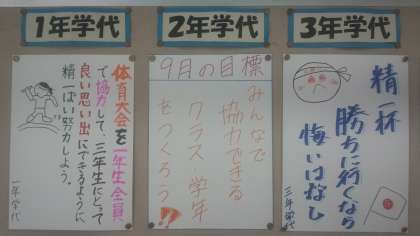 1年学代
2年学代
3年学代
体育大会を一年生全員
で協力して、三年生にとって
良い思い出にできるように
精一ぱい努力しよう。
一年学代
9月の目標
みんなで
協力できる
クラス 学年
をつくろう!!
精一杯
勝ちに行くなら
悔いはなし
三年学代